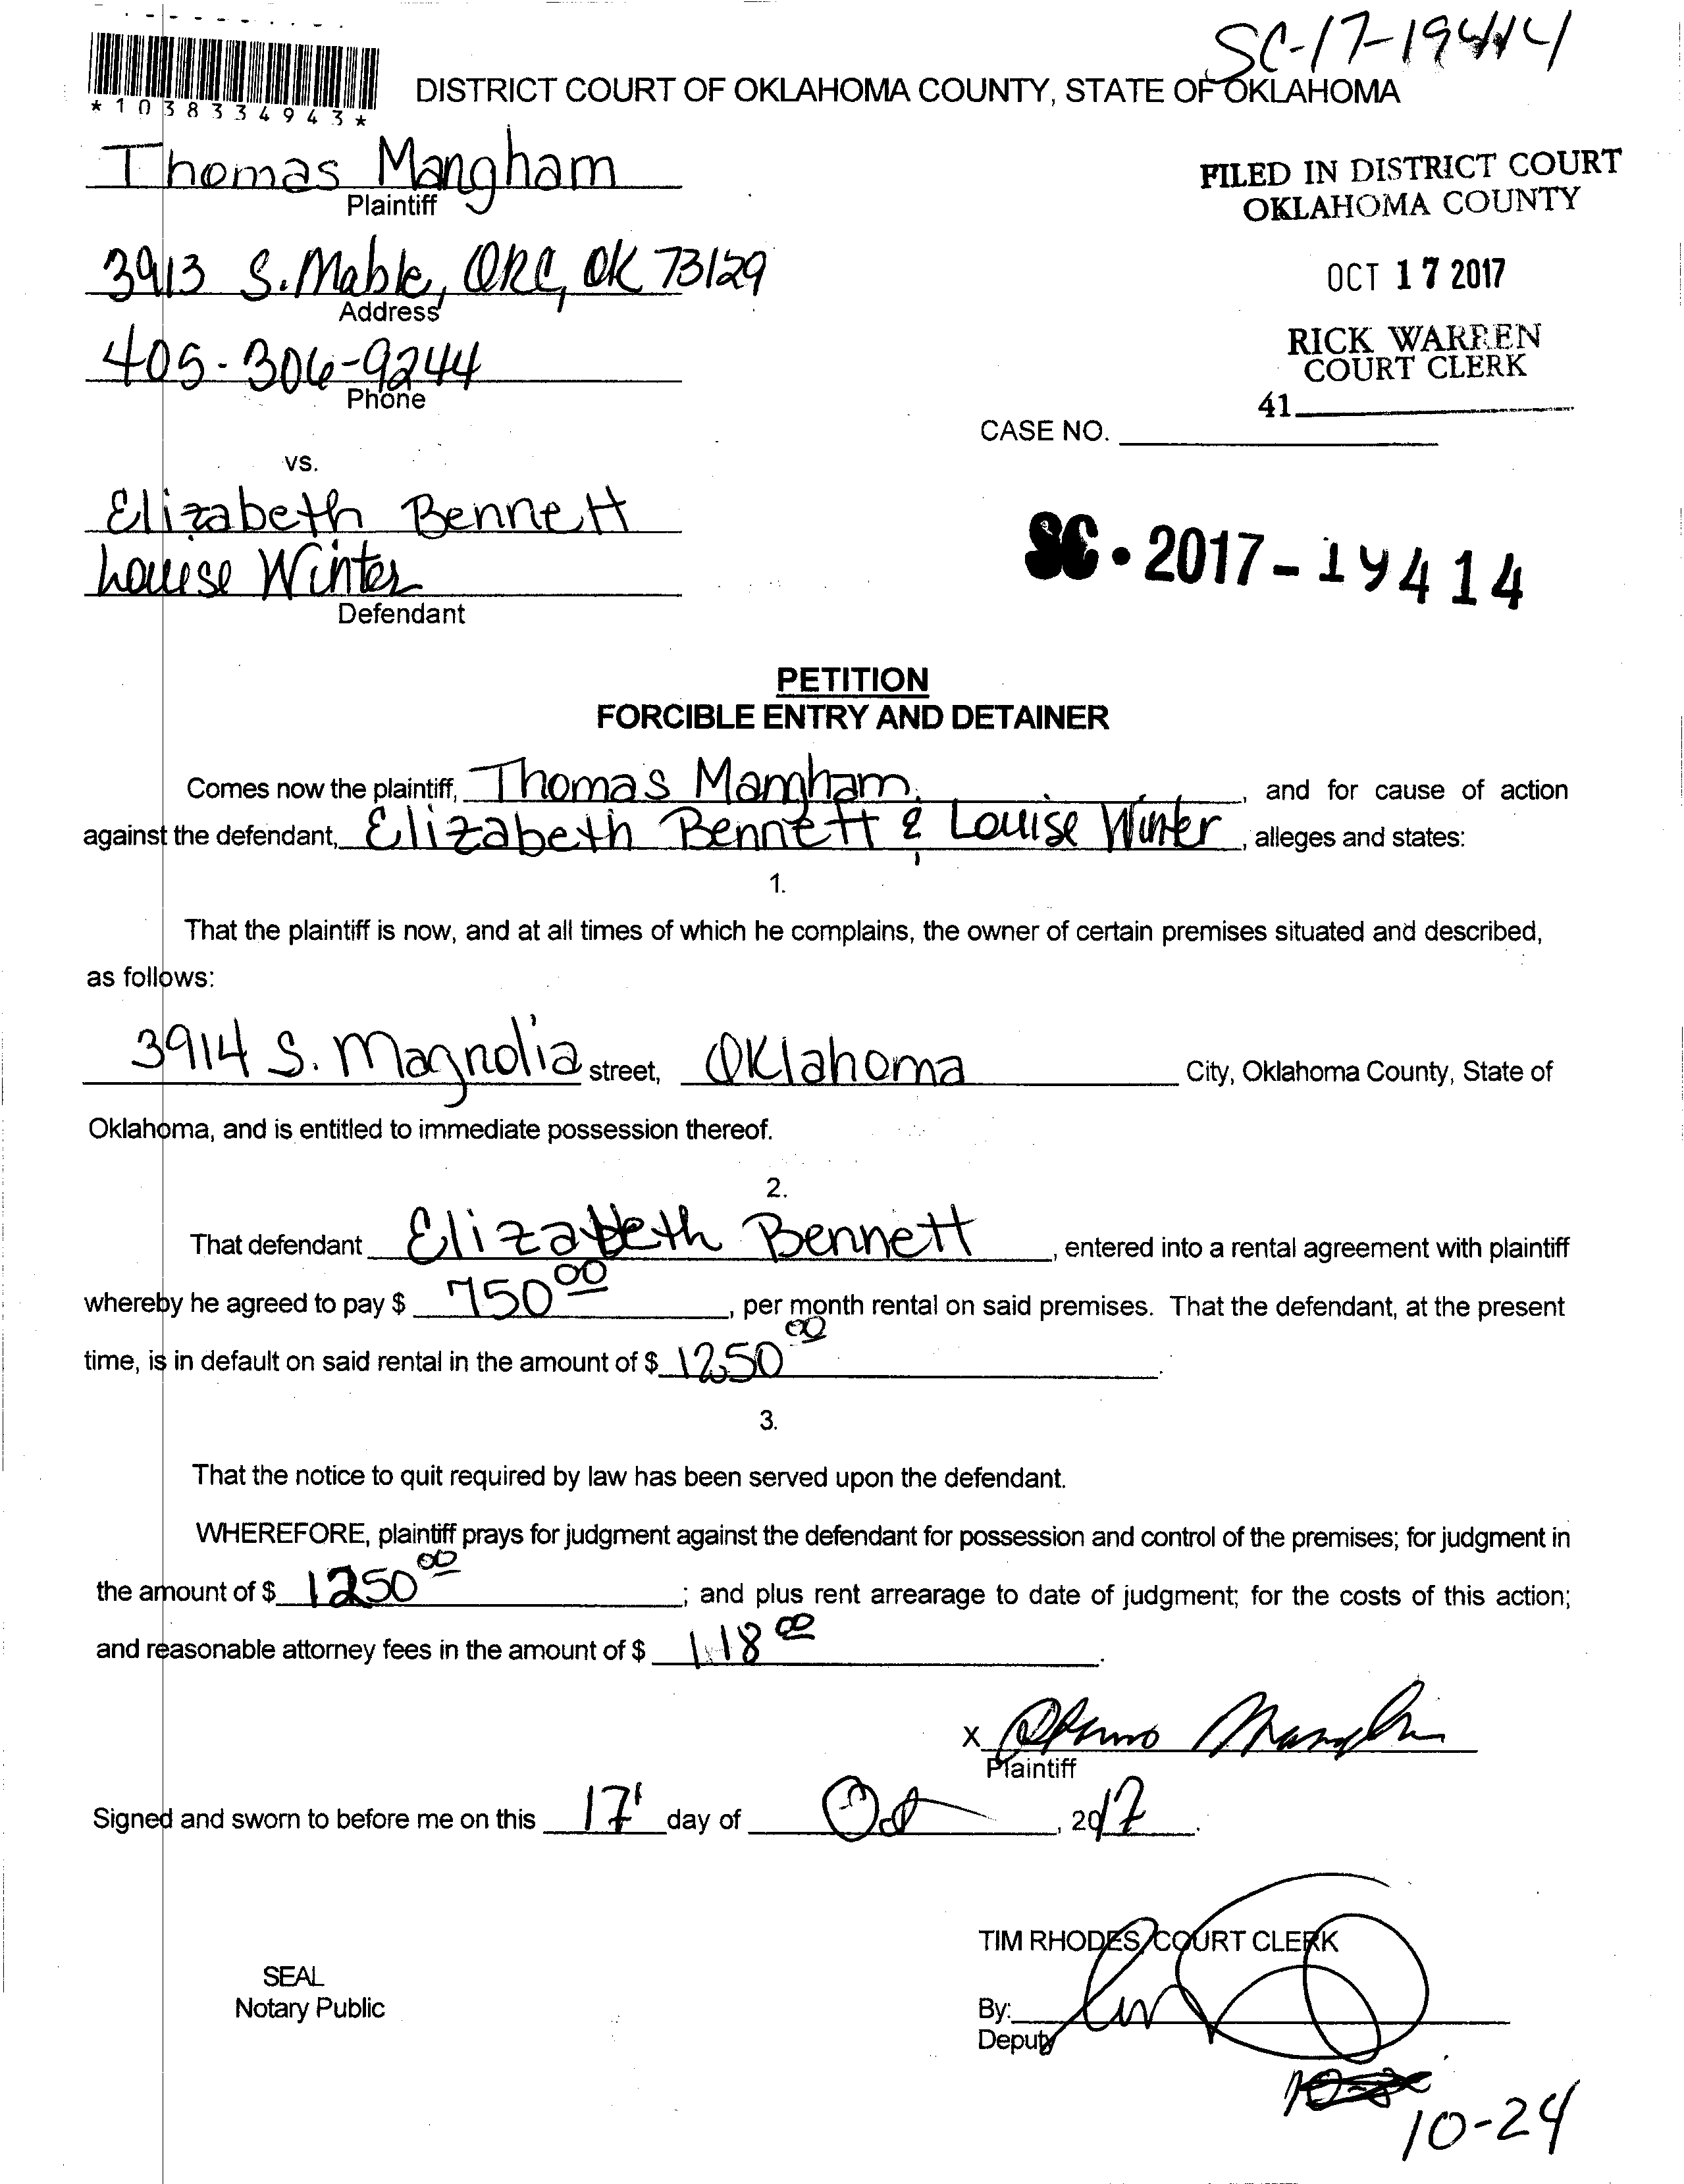 SC-17-19414
*1038334943*
DISTRICT COURT OF OKLAHOMA COUNTY, STATE OF OKLAHOMA
Thomas Mangham
Plaintiff
FILED IN DISTRICT COURT
OKLAHOMA COUNTY
3913 S. Mable, OKC, OK 73129
Address
OCT 17 2017
405-306-9244
Phone
RICK WARREN
COURT CLERK
41
CASE NO.
vs.
Elizabeth Bennett
Louise Winter
Defendant
SC-2017-19414
PETITION
FORCIBLE ENTRY AND DETAINER
Comes now the plaintiff, Thomas Mangham, and for cause of action
against the defendant, Elizabeth Bennett & Louise Winter, alleges and states:
1.
That the plaintiff is now, and at all times of which he complains, the owner of certain premises situated and described,
as follows:
3914 S. Magnolia street, Oklahoma City, Oklahoma County, State of
Oklahoma, and is entitled to immediate possession thereof.
2.
That defendant Elizabeth Bennett, entered into a rental agreement with plaintiff
whereby he agreed to pay $ 750 00, per month rental on said premises. That the defendant, at the present
time, is in default on said rental in the amount of $ 1250 00.
3.
That the notice to quit required by law has been served upon the defendant.
WHEREFORE, plaintiff prays for judgment against the defendant for possession and control of the premises; for judgment in
the amount of $ 1250 00; and plus rent arrearage to date of judgment; for the costs of this action;
and reasonable attorney fees in the amount of $ 118 00.
X
Plaintiff
Signed and sworn to before me on this 17 day of Oct, 2017.
TIM RHODES, COURT CLERK
SEAL
Notary Public
By:
Deputy
10-24